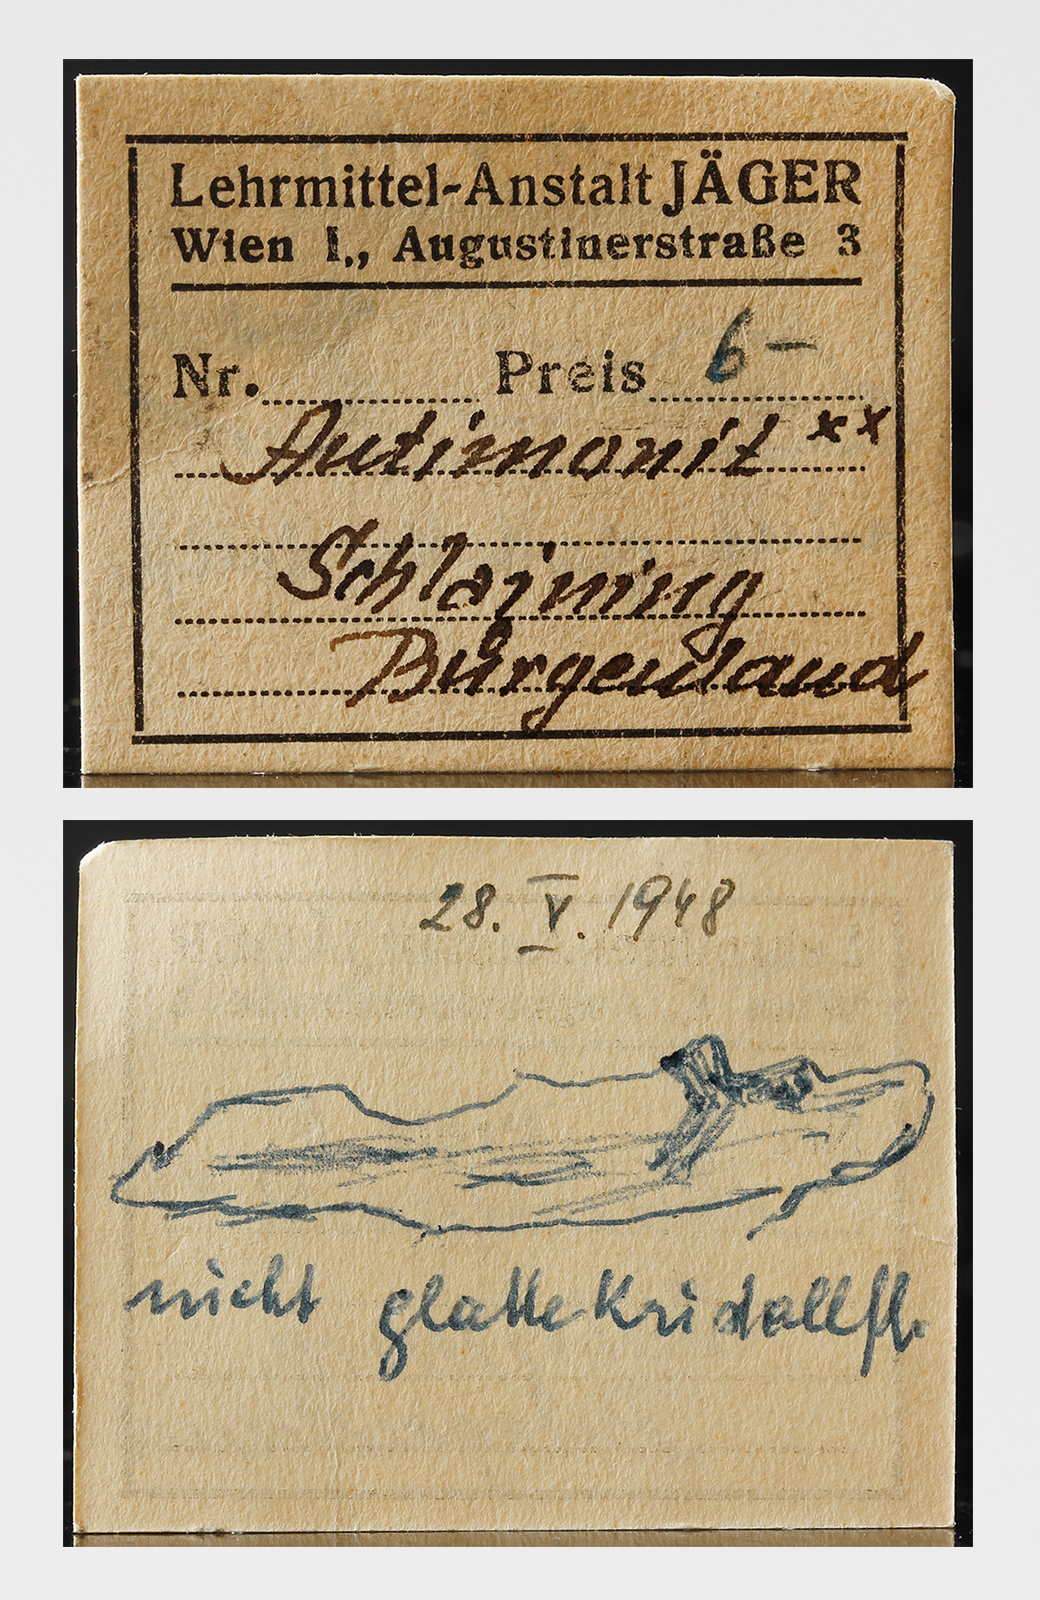 Lehrmittel-Anstalt JÄGER
Wien I., Augustinerstraße 3
Nr. Preis 6 —
Antimonit xx
Schlaining
Burgenland
28. V. 1948
nicht glatte Kristallfl.